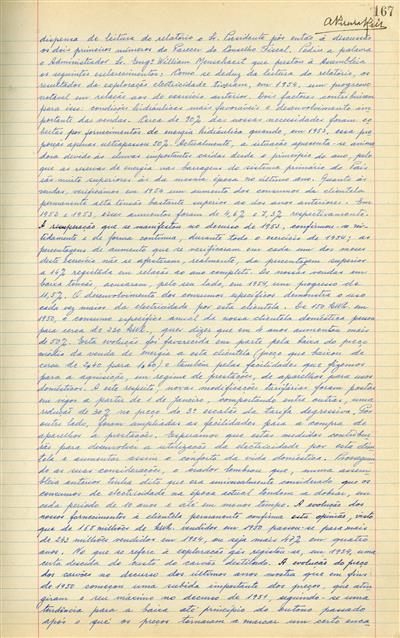 167
dispensa da leitura do relatório o Sr. Presidente pôs então à discussão
os dois primeiros números do Parecer do Conselho Fiscal. Pediu a palavra
o Administrador Sr. Engº William Menschaert que prestou à Assembleia
os seguintes esclarecimentos: Como se deduz da leitura do relatório, os
resultados da exploração electricidade tiveram, em 1954, um progresso
notável em relação aos do exercício anterior. Dois factores contribuiram
para isso: condições hidráulicas mais favoráveis e desenvolvimento im-
portante das vendas. Cerca de 90% das nossas necessidades foram co-
bertas por fornecimentos de energia hidráulica quando, em 1953, essa pro-
porção apenas ultrapassou 50%. Actualmente, a situação apresenta-se anima-
dora devido às chuvas importantes caídas desde o princípio do ano, pelo
que as reservas de energia nas barragens do sistema primário do País
são muito superiores às da mesma época no último ano. Quanto às
vendas, verificámos em 1954 um aumento dos consumos da clientela
permanente alta tensão bastante superior ao dos anos anteriores. Em
1952 e 1953, esses aumentos foram de 4,6% e 7,5% respectivamente.
A recuperação que se manifestou no decurso de 1953, confirmou-se ni-
tidamente e de forma contínua, durante todo o exercício de 1954; as
percentagens de aumento que se verificaram em cada um dos meses
deste exercício não se afastaram, realmente, da percentagem superior
a 16% registada em relação ao ano completo. As nossas vendas em
baixa tensão, acusaram, pelo seu lado, em 1954, um progresso de
11,5%. O desenvolvimento dos consumos específicos demonstra o uso
cada vez maior da electricidade por esta clientela. De 150 kWh. em
1950, o consumo específico anual da nossa clientela doméstica passou
para cerca de 230 kWh., quer dizer que em 4 anos aumentou mais
de 50%. Esta evolução foi favorecida em parte pela baixa do preço
médio da venda de energia a esta clientela (preço que baixou de
cerca de 2$40 para 1$60) e também pelas facilidades que fizemos
para a aquisição, em regime de prestações, de aparelhos para usos
domésticos. A este respeito, novas modificações tarifárias foram postas
em vigor a partir de 1 de Janeiro, comportando entre outras, uma
redução de 30% no preço do 3º escalão da tarifa degressiva. Por
outro lado, foram ampliadas as facilidades para a compra de
aparelhos a prestações. Esperamos que estas medidas contribui-
rão para desenvolver a utilização da electricidade por esta clien-
tela e aumentar assim o conforto da vida doméstica. Prosseguin-
do as suas considerações, o orador lembrou que, numa assem-
bleia anterior tinha dito que era universalmente considerado que os
consumos de electricidade na época actual tendem a dobrar, em
cada período de 10 anos e até em menos tempo. A evolução dos
nossos fornecimentos à clientela permanente confirma esta opinião, visto
que de 168 milhões de kWh. vendidos em 1950 passou-se para mais
de 243 milhões vendidos em 1954, ou seja mais 47% em quatro
anos. No que se refere à exploração gás registou-se, em 1954, uma
certa descida do custo do carvão destilado. A evolução do preço
dos carvões no decurso dos últimos anos mostra que em fins
de 1950 começou uma subida importante dos preços, que atin-
giram o seu máximo no decurso de 1951, seguindo-se uma
tendência para a baixa até princípio do outono passado
após o que os preços tornaram a marcar um certo enca-